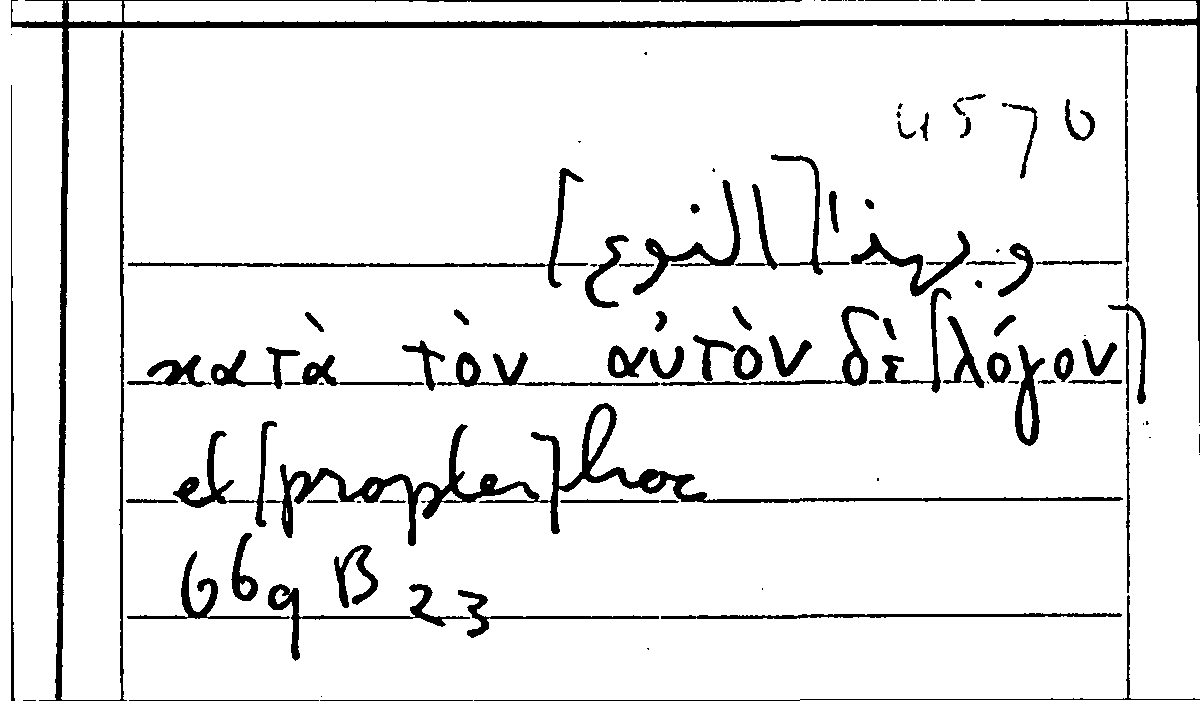 4576
وبهذا [النوع]
κατὰ τὸν αὐτὸν δὲ [λόγον]
et [propter] hoc
669 B 23